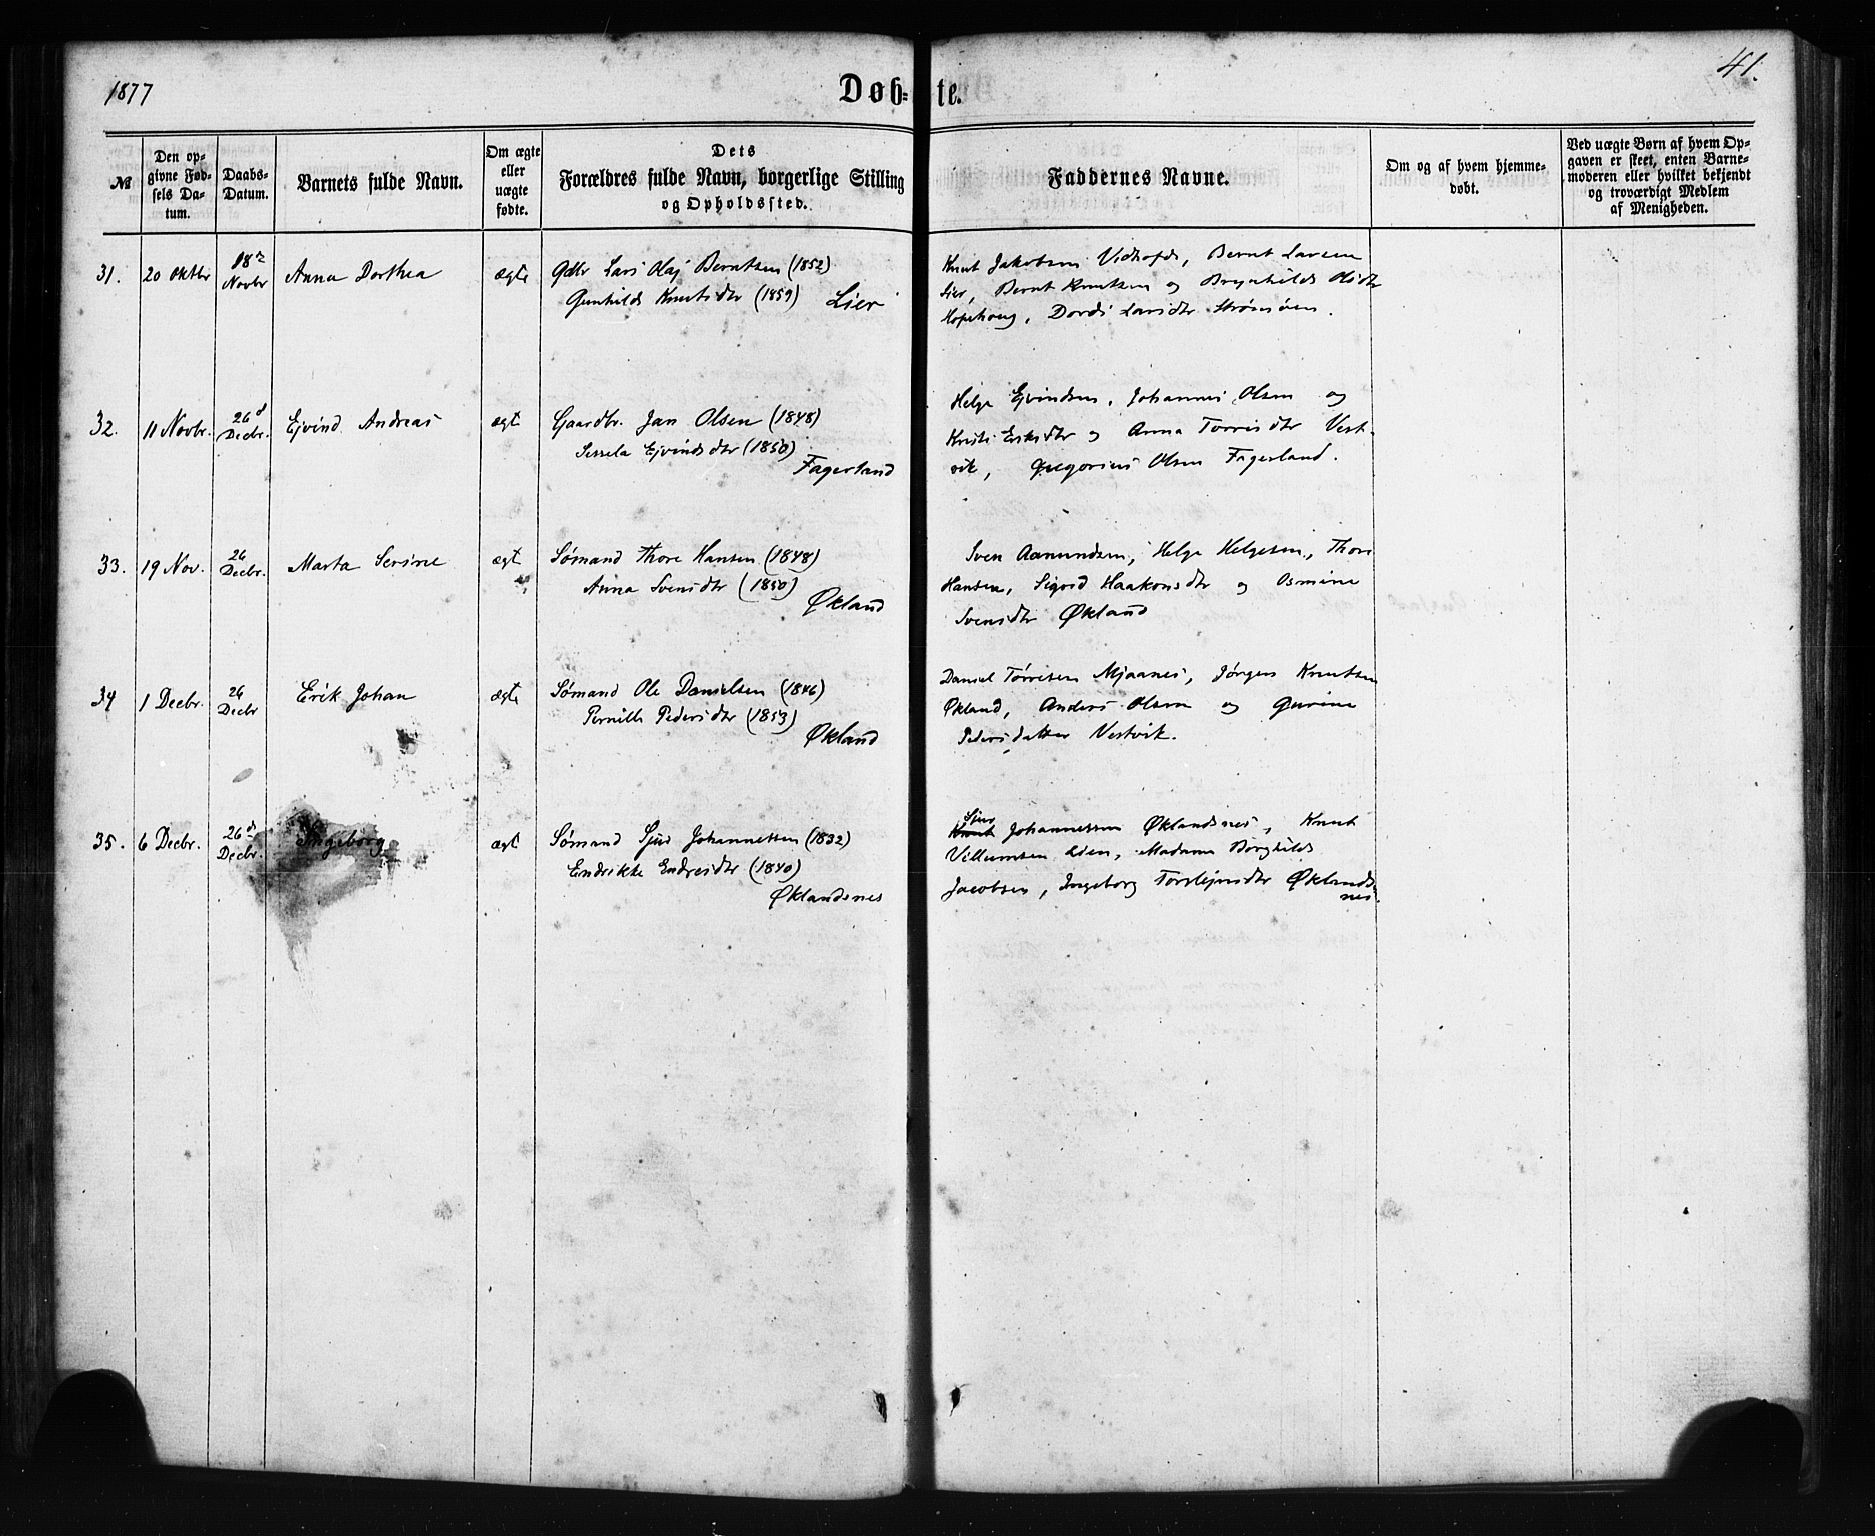 1877
Døb=te.
41.
№
Den op=
givne Fød=
sels Da=
tum.
Daabs=
Datum.
Barnets fulde Navn.
Om ægte
eller
uægte
fødte.
Dets
Forældres fulde Navn, borgerlige Stilling
og Opholdssted.
Faddernes Navne.
Om og af hvem hjemme=
døbt.
Ved uægte Børn af hvem Op=
gaven er skeet, enten Barne=
moderen eller hvilket bekjendt
og troværdigt Medlem
af Menigheden.
31.
20 Oktbr
18de
Novbr
Anna Dorthea
ægte
Gdbr Lars Olaj Berntsen (1852)
Gunhilds Knutsdtr (1859) Lier
Knut Jakobsen, Bernt Larsen
Lier, Bernt Knutsen og Brynhilds Olsdtr
Hopehoug, Dordi Larsdtr Strømøen.
32.
11 Novbr.
26d
Decbr.
Ejvind Andreas
ægt
Gaardbr. Jan Olsen (1848)
Sessela Ejvindsdtr (1850)
Fagerland
Helge Ejvindsen, Johannes Olsen og
Kristi Eriksdtr og Anna Torrisdtr Vest-
vik, Gregorius Olsen Fagerland.
33.
19 Nov.
26
Decbr.
Marta Serine
ægt
Sømand Thore Hansen (1848)
Anna Svensdtr (1850)
Økland
Sven Aamundsen, Helge Helgesen, Thore
Hansen, Sigvor Haakonsdtr og Osmine
Svensdtr Økland
34
1 Decbr.
26
Decbr
Erik Johan
ægte
Sømand Ole Danielsen (1846)
Pernille Pedersdtr (1853)
Økland
Daniel Tørresen Mjaanes, Jørgen Knutsen
Økland, Anders Olsen og Gurine
Pedersdatter Vestvik.
35.
6 Decbr.
26de
Decbr.
Ingeborg
ægt
Sømand Sjur Johannessen (1832)
Endrikke Endresdtr (1840)
Øklandsnes
Sjur
Knut Johannessen Øklandsnes, Knut
Villumsen Lien, Madame Borghilds
Jacobsen, Ingeborg Torslejnsdtr Øklands-
nes.